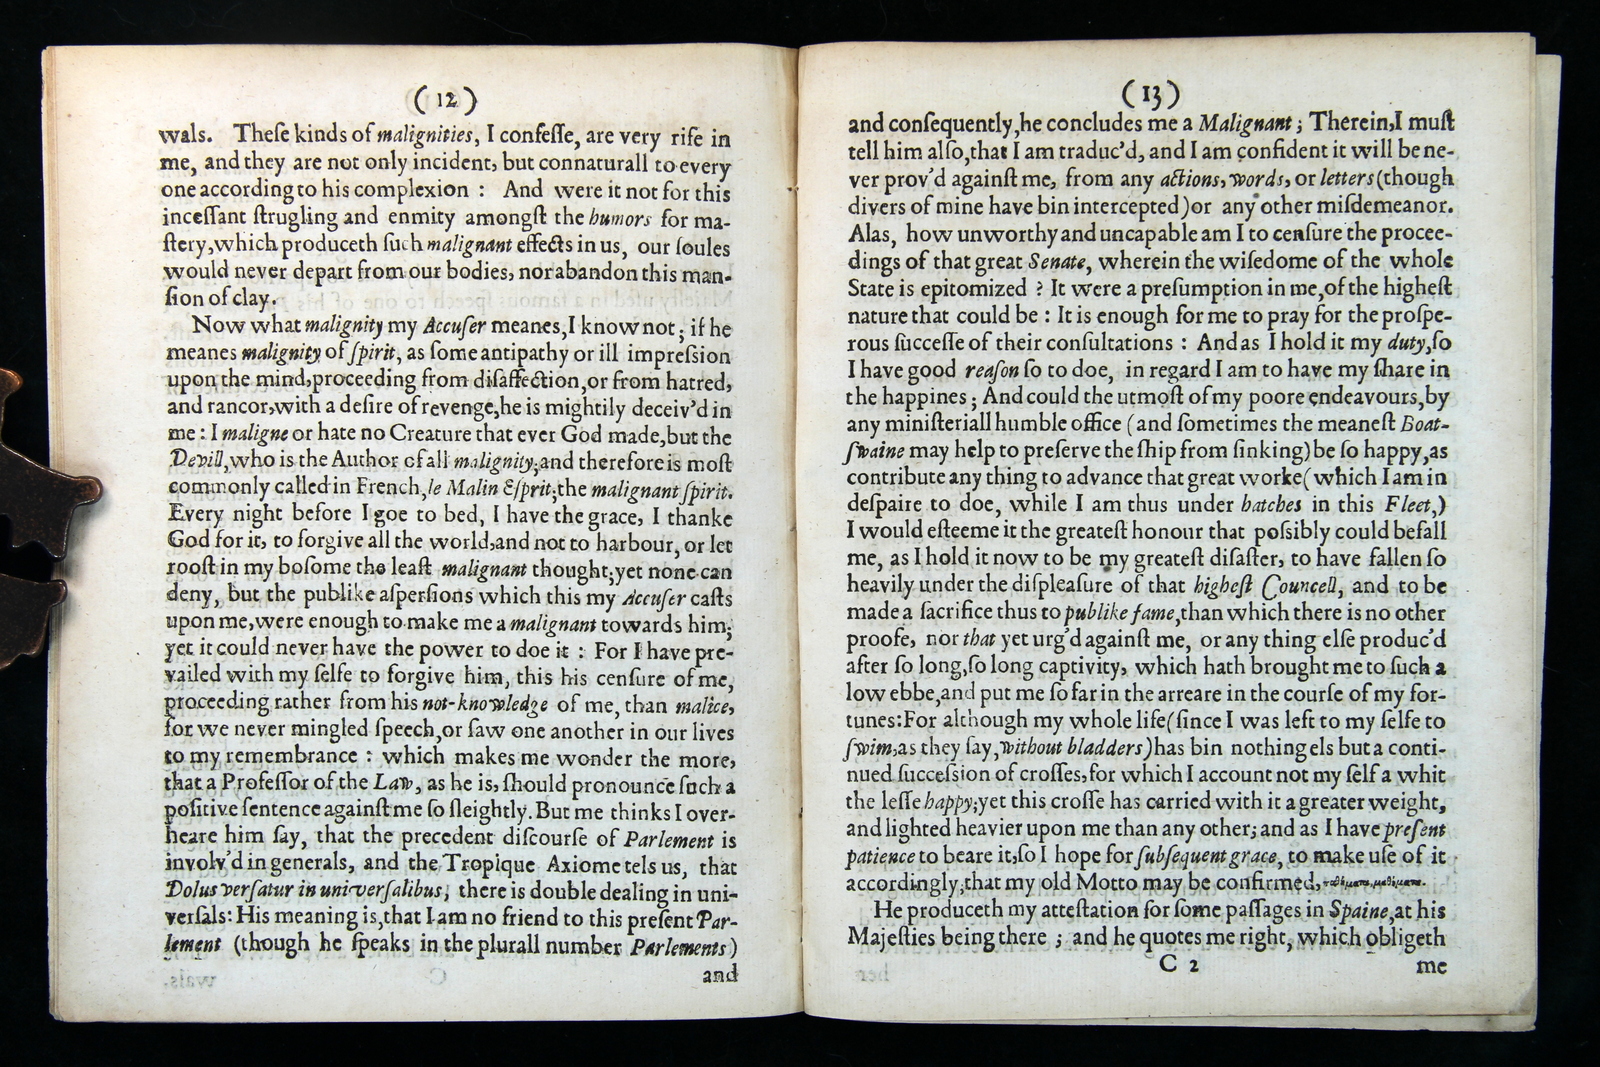 (12)
wals. Theſe kinds of malignities, I confeſſe, are very rife in
me, and they are not only incident, but connaturall to every
one according to his complexion : And were it not for this
inceſſant ſtrugling and enmity amongſt the humors for ma-
ſtery, which produceth ſuch malignant effects in us, our ſoules
would never depart from our bodies, nor abandon this man-
ſion of clay.
Now what malignity my Accuſer meanes, I know not; if he
meanes malignity of ſpirit, as ſome antipathy or ill impreſsion
upon the mind, proceeding from diſaffection, or from hatred,
and rancor, with a deſire of revenge, he is mightily deceiv'd in
me : I maligne or hate no Creature that ever God made, but the
Devill, who is the Author of all malignity; and therefore is moſt
commonly called in French, le Malin Eſprit; the malignant ſpirit.
Every night before I goe to bed, I have the grace, I thanke
God for it, to forgive all the world, and not to harbour, or let
rooſt in my boſome the leaſt malignant thought; yet none can
deny, but the publike aſperſions which this my Accuſer caſts
upon me, were enough to make me a malignant towards him;
yet it could never have the power to doe it : For I have pre-
vailed with my ſelfe to forgive him, this his cenſure of me,
proceeding rather from his not-knowledge of me, than malice,
for we never mingled ſpeech, or ſaw one another in our lives
to my remembrance : which makes me wonder the more,
that a Profeſſor of the Law, as he is, ſhould pronounce ſuch a
poſitive ſentence againſt me ſo ſleightly. But me thinks I over-
heare him ſay, that the precedent diſcourſe of Parlement is
involv'd in generals, and the Tropique Axiome tels us, that
Dolus verſatur in univerſalibus; there is double dealing in uni-
verſals: His meaning is, that I am no friend to this preſent Par-
lement (though he ſpeaks in the plurall number Parlements)
and
(13)
and conſequently, he concludes me a Malignant; Therein, I muſt
tell him alſo, that I am traduc'd, and I am confident it will be ne-
ver prov'd againſt me, from any actions, words, or letters (though
divers of mine have bin intercepted) or any other miſdemeanor.
Alas, how unworthy and uncapable am I to cenſure the procee-
dings of that great Senate, wherein the wiſedome of the whole
State is epitomized ? It were a preſumption in me, of the higheſt
nature that could be : It is enough for me to pray for the proſpe-
rous ſucceſſe of their conſultations : And as I hold it my duty, ſo
I have good reaſon ſo to doe, in regard I am to have my ſhare in
the happines; And could the utmoſt of my poore endeavours, by
any miniſteriall humble office (and ſometimes the meaneſt Boat-
ſwaine may help to preſerve the ſhip from ſinking) be ſo happy, as
contribute any thing to advance that great worke (which I am in
deſpaire to doe, while I am thus under hatches in this Fleet,)
I would eſteeme it the greateſt honour that poſsibly could befall
me, as I hold it now to be my greateſt diſaſter, to have fallen ſo
heavily under the diſpleaſure of that higheſt Councell, and to be
made a ſacrifice thus to publike fame, than which there is no other
proofe, nor that yet urg'd againſt me, or any thing elſe produc'd
after ſo long, ſo long captivity, which hath brought me to ſuch a
low ebbe, and put me ſo far in the arreare in the courſe of my for-
tunes: For although my whole life (ſince I was left to my ſelfe to
ſwim, as they ſay, without bladders) has bin nothing els but a conti-
nued ſucceſsion of croſſes, for which I account not my ſelf a whit
the leſſe happy; yet this croſſe has carried with it a greater weight,
and lighted heavier upon me than any other; and as I have preſent
patience to beare it, ſo I hope for ſubſequent grace, to make uſe of it
accordingly; that my old Motto may be confirmed,
He produceth my atteſtation for ſome paſſages in Spaine, at his
Majeſties being there ; and he quotes me right, which obligeth
C 2 me